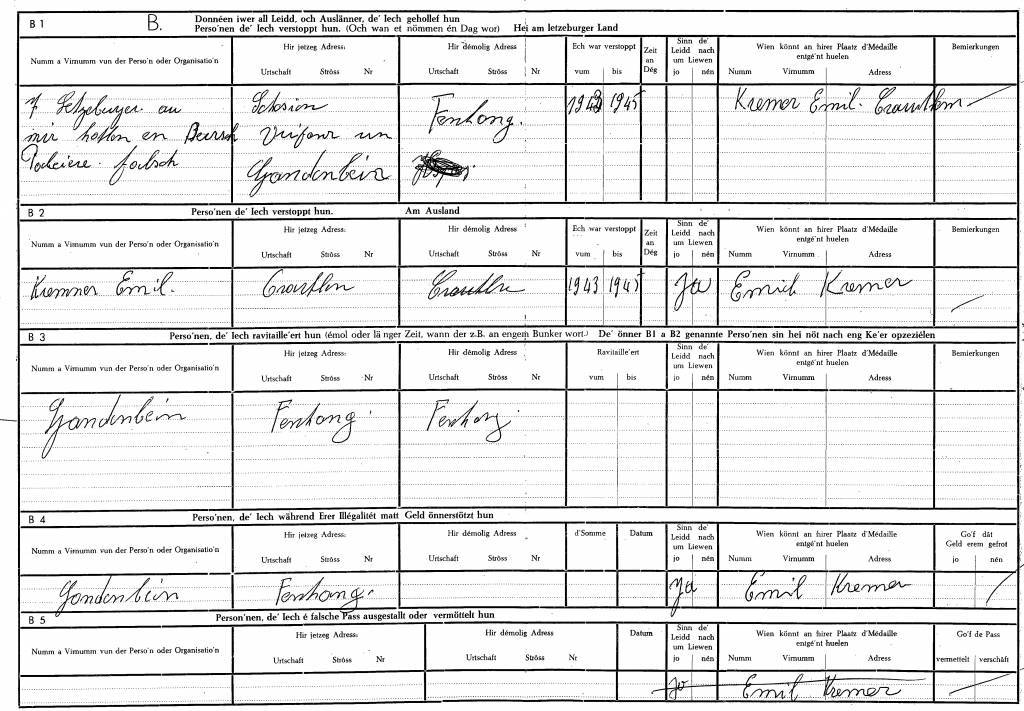 B 1
B.
Donnéen iwer all Leidd, och Auslänner, de' Iech gehollef hun
Perso'nen de' Iech verstoppt hun. (Och wan et nömmen én Dag wor) Hei am letzeburger Land
Numm a Virnumm vun der Perso'n oder Organisatio'n
Hir jetzeg Adress:
Urtschaft Ströss Nr
Hir démolig Adress
Urtschaft Ströss Nr
Ech war verstoppt
vum bis
Zeit an Dég
Sinn de' Leidd nach um Liewen
jo nén
Wien könnt an hirer Plaatz d'Médaille entgé'nt huelen
Numm Virnumm Adress
Bemierkungen
7 Letzeburger an
mir hatten en
falsch
Gandenbein
Fenhang.
1943 1945
Kremer Emil.
B 2
Perso'nen de' Iech verstoppt hun. Am Ausland
Numm a Virnumm vun der Perso'n oder Organisatio'n
Hir jetzeg Adress:
Urtschaft Ströss Nr
Hir démolig Adress:
Urtschaft Ströss Nr
Ech war verstoppt
vum bis
Zeit an Dég
Sinn de' Leidd nach um Liewen
jo nén
Wien könnt an hirer Plaatz d'Médaille entgé'nt huelen
Numm Virnumm Adress
Bemierkungen
Kremner Emil.
1943 1945
Ja
Emil Kremer
B 3
Perso'nen, de' Iech ravitaille'ert hun (émol oder länger Zeit, wann der z.B. an engem Bunker wort.) De' önner B1 a B2 genannte Perso'nen sin hei nöt nach eng Ke'er opzeziélen
Numm a Virnumm vun der Perso'n oder Organisatio'n
Hir jetzeg Adress:
Urtschaft Ströss Nr
Hir démolig Adress:
Urtschaft Ströss Nr
Ravitaille'ert
vum bis
Sinn de' Leidd nach um Liewen
jo nén
Wien könnt an hirer Plaatz d'Médaille entgé'nt huelen
Numm Virnumm Adress
Bemierkungen
Gandenbein Fenhang. Fenhang.
B 4
Perso'nen, de' Iech während Erer Illégalitét matt Geld önnerstötzt hun
Numm a Virnumm vun der Perso'n oder Organisatio'n
Hir jetzeg Adress:
Urtschaft Ströss Nr
Hir démolig Adress
Urtschaft Ströss Nr
d'Somme
Datum
Sinn de' Leidd nach um Liewen
jo nén
Wien könnt an hirer Plaatz d'Médaille entgé'nt huelen
Numm Virnumm Adress
Go'f dât Geld erem gefrot
jo nén
Gandenbein Fenhang. Ja Emil Kremer
B 5
Perso'nnen, de' Iech é falsche Pass ausgestallt oder vermöttelt hun
Numm a Virnumm vun der Perso'n oder Organisatio'n
Hir jetzeg Adress:
Urtschaft Ströss Nr
Hir démolig Adress
Urtschaft Ströss Nr
Datum
Sinn de' Leidd nach um Liewen
jo nén
Wien könnt an hirer Plaatz d'Médaille entgé'nt huelen
Numm Virnumm Adress
Go'f de Pass
vermettelt verschäft
Jo Emil Kremer